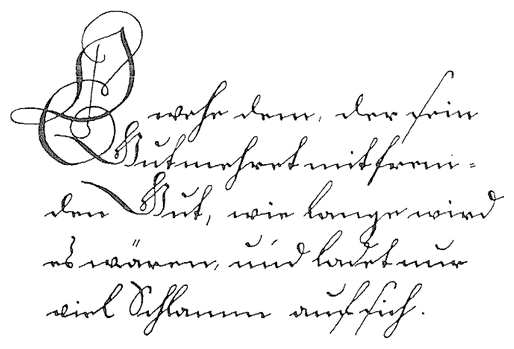 O wehe dem, der sein
Gut mehret mit frem=
den Gut, wie lange wird
es wären, und ladet nur
viel Schlamm auf sich.